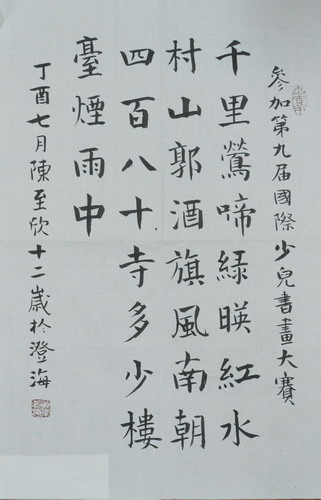 參加第九届國際少兒書畫大賽
千里鶯啼緑暎紅水
村山郭酒旗風南朝
四百八十寺多少樓
臺煙雨中
丁酉七月陳至欣十二歲於澄海